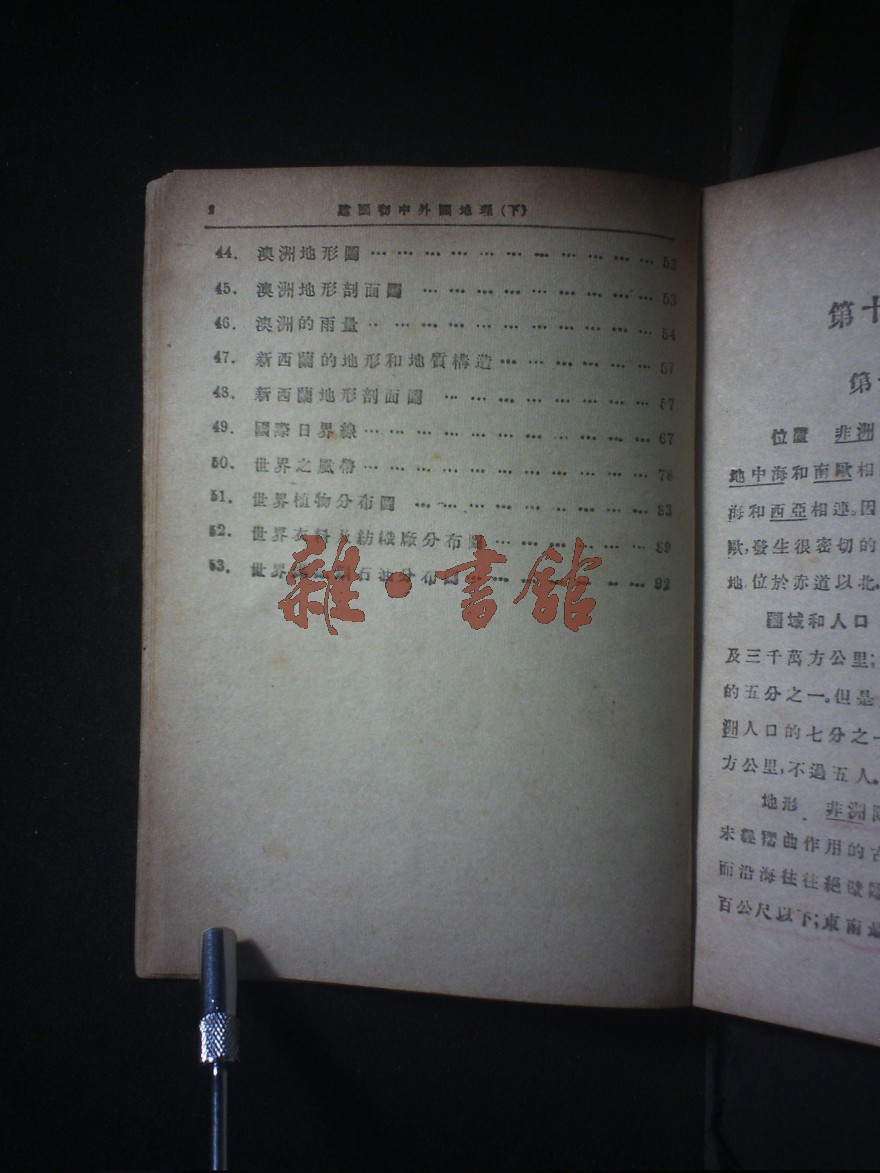 2 建國初中外國地理(下)
44. 澳洲地形圖 … … … … … … … … … … … 52
45. 澳洲地形剖面圖 … … … … … … … … … 53
46. 澳洲的雨量 … … … … … … … … … … … 54
47. 新西蘭的地形和地質構造 … … … … … … 57
48. 新西蘭地形剖面圖 … … … … … … … … 57
49. 國際日界線 … … … … … … … … … … … 67
50. 世界之風帶 … … … … … … … … … … … 78
51. 世界植物分布圖 … … … … … … … … … 83
52. 世界衣料及紡織廠分布圖 … … … … … … 89
53. 世界 石油分布圖 … … … … … … … 92
雜·書館
第十
第
位置 非洲
地中海和南歐相
海和西亞相連。因
歐,發生很密切的
地,位於赤道以北,
區域和人口
及三千萬方公里;
的五分之一。但是
洲人口的七分之一
方公里,不過五人。
地形 非洲
未經褶曲作用的古
而沿海往往絕壁
百公尺以下;東南